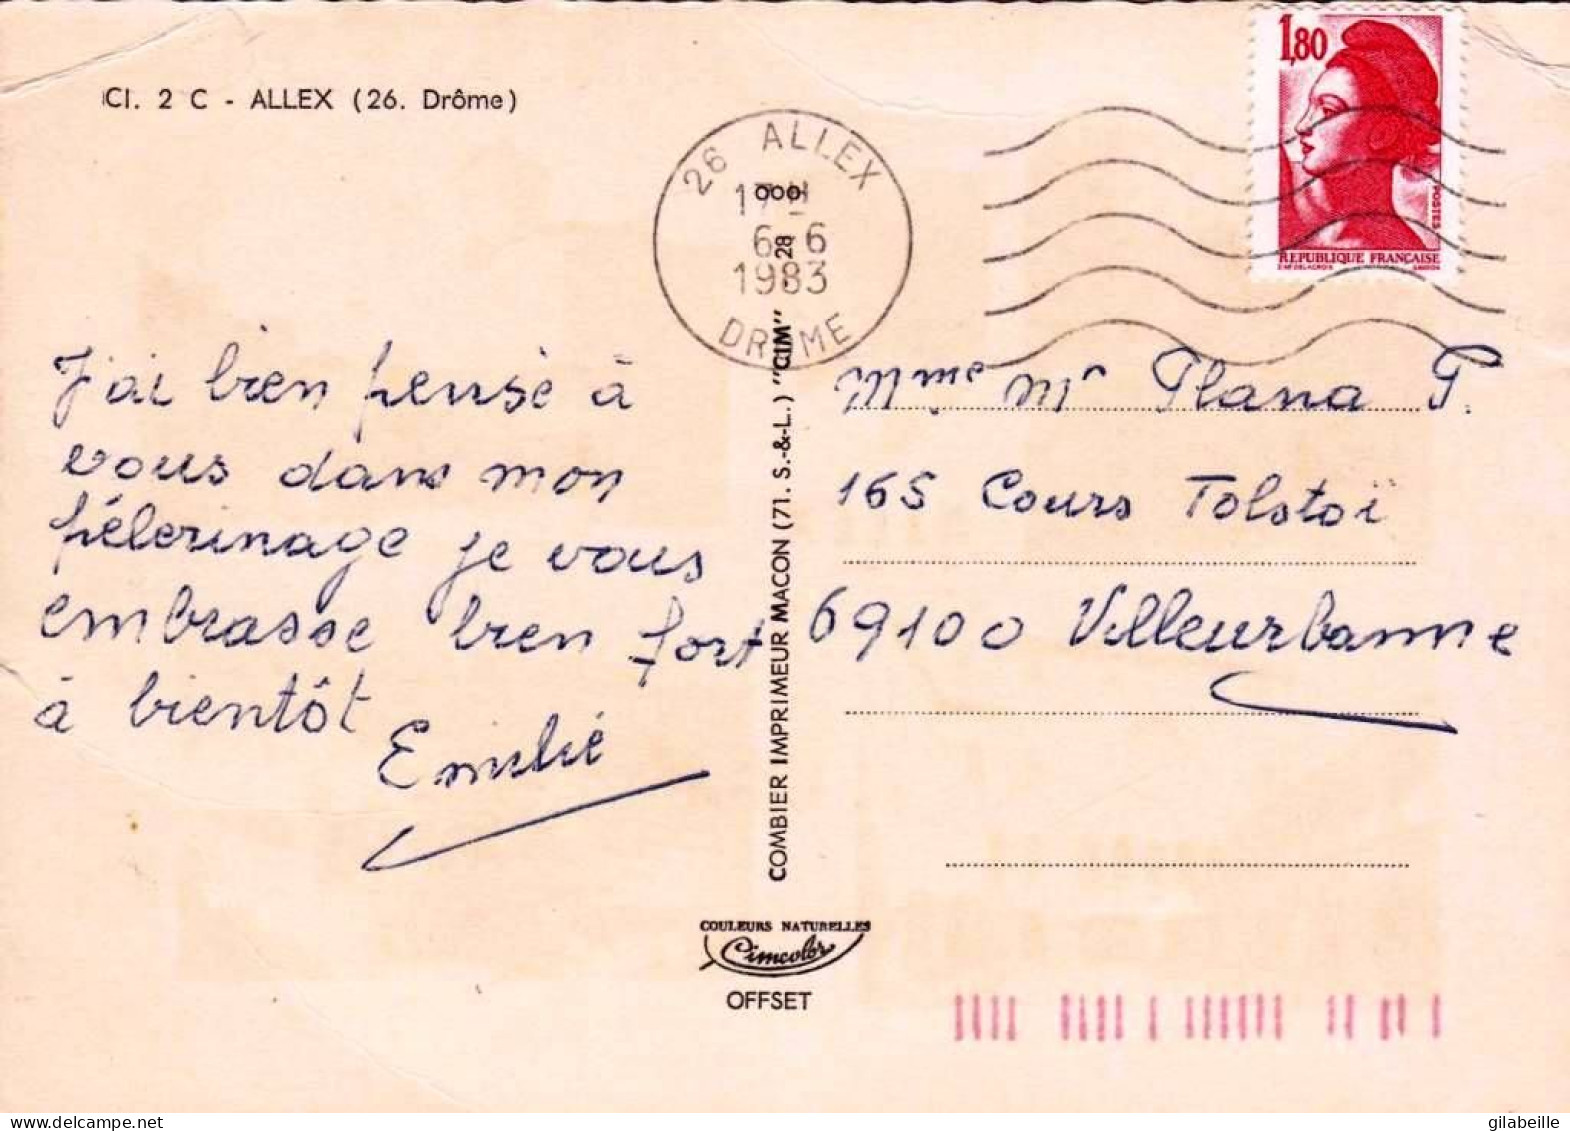 CI. 2 C - ALLEX (26. Drôme)
26 ALLEX
17H
6-6
1983
DRÔME
1,80
POSTES
REPUBLIQUE FRANÇAISE
J'ai bien pensé à
vous dans mon
pélerinage je vous
embrasse bien fort
à bientôt
Emilie
COMBIER IMPRIMEUR MACON (71. S.-&-L.) "CIM"
Mme Mr Plana P.
165 Cours Tolstoï
69100 Villeurbanne
COULEURS NATURELLES
Cimcolor
OFFSET
delcampe.net
gilabeille